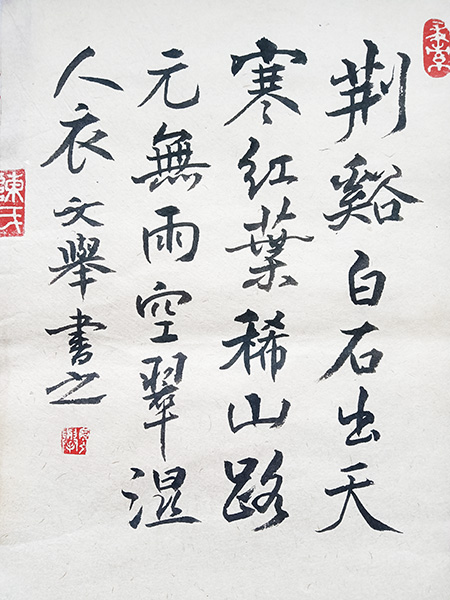 荆谿白石出天
寒红葉稀山路
元無雨空翠濕
人衣 文舉書之